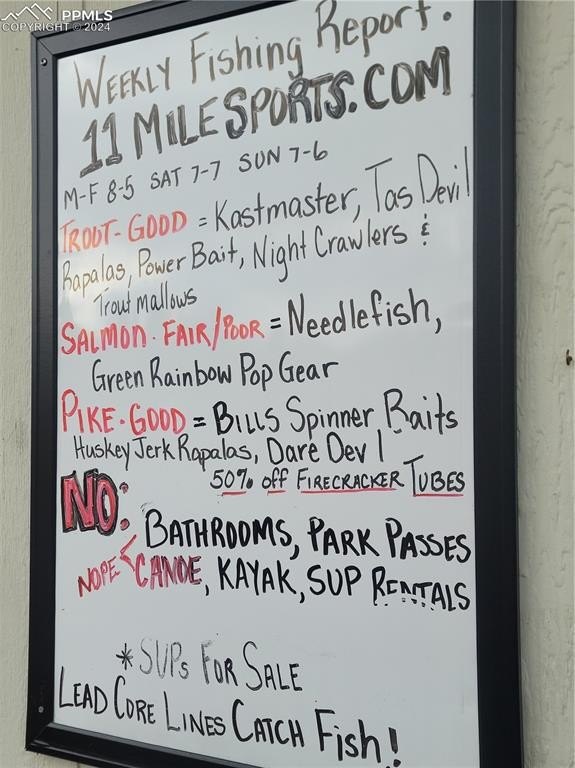 PPMLS
COPYRIGHT © 2024
WEEKLY FISHING REPORT.
11 MILESPORTS.COM
M-F 8-5 SAT 7-7 SUN 7-6
TROUT-GOOD = Kastmaster, Tas Devil
Rapalas, Power Bait, Night Crawlers &
Trout mallows
SALMON-FAIR/POOR = Needlefish,
Green Rainbow Pop Gear
PIKE-GOOD = BILLS Spinner Baits
Huskey Jerk Rapalas, Dare Dev l
50% off FIRECRACKER TUBES
NO:
BATHROOMS, PARK PASSES
NOPE < CANOE, KAYAK, SUP RENTALS
*SUPs FOR SALE
LEAD CORE LINES CATCH Fish!